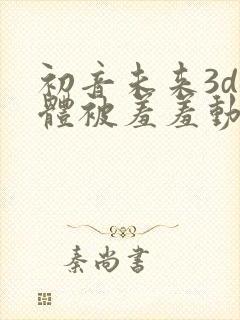 初音未来3d
體被羞羞動
秦尚書